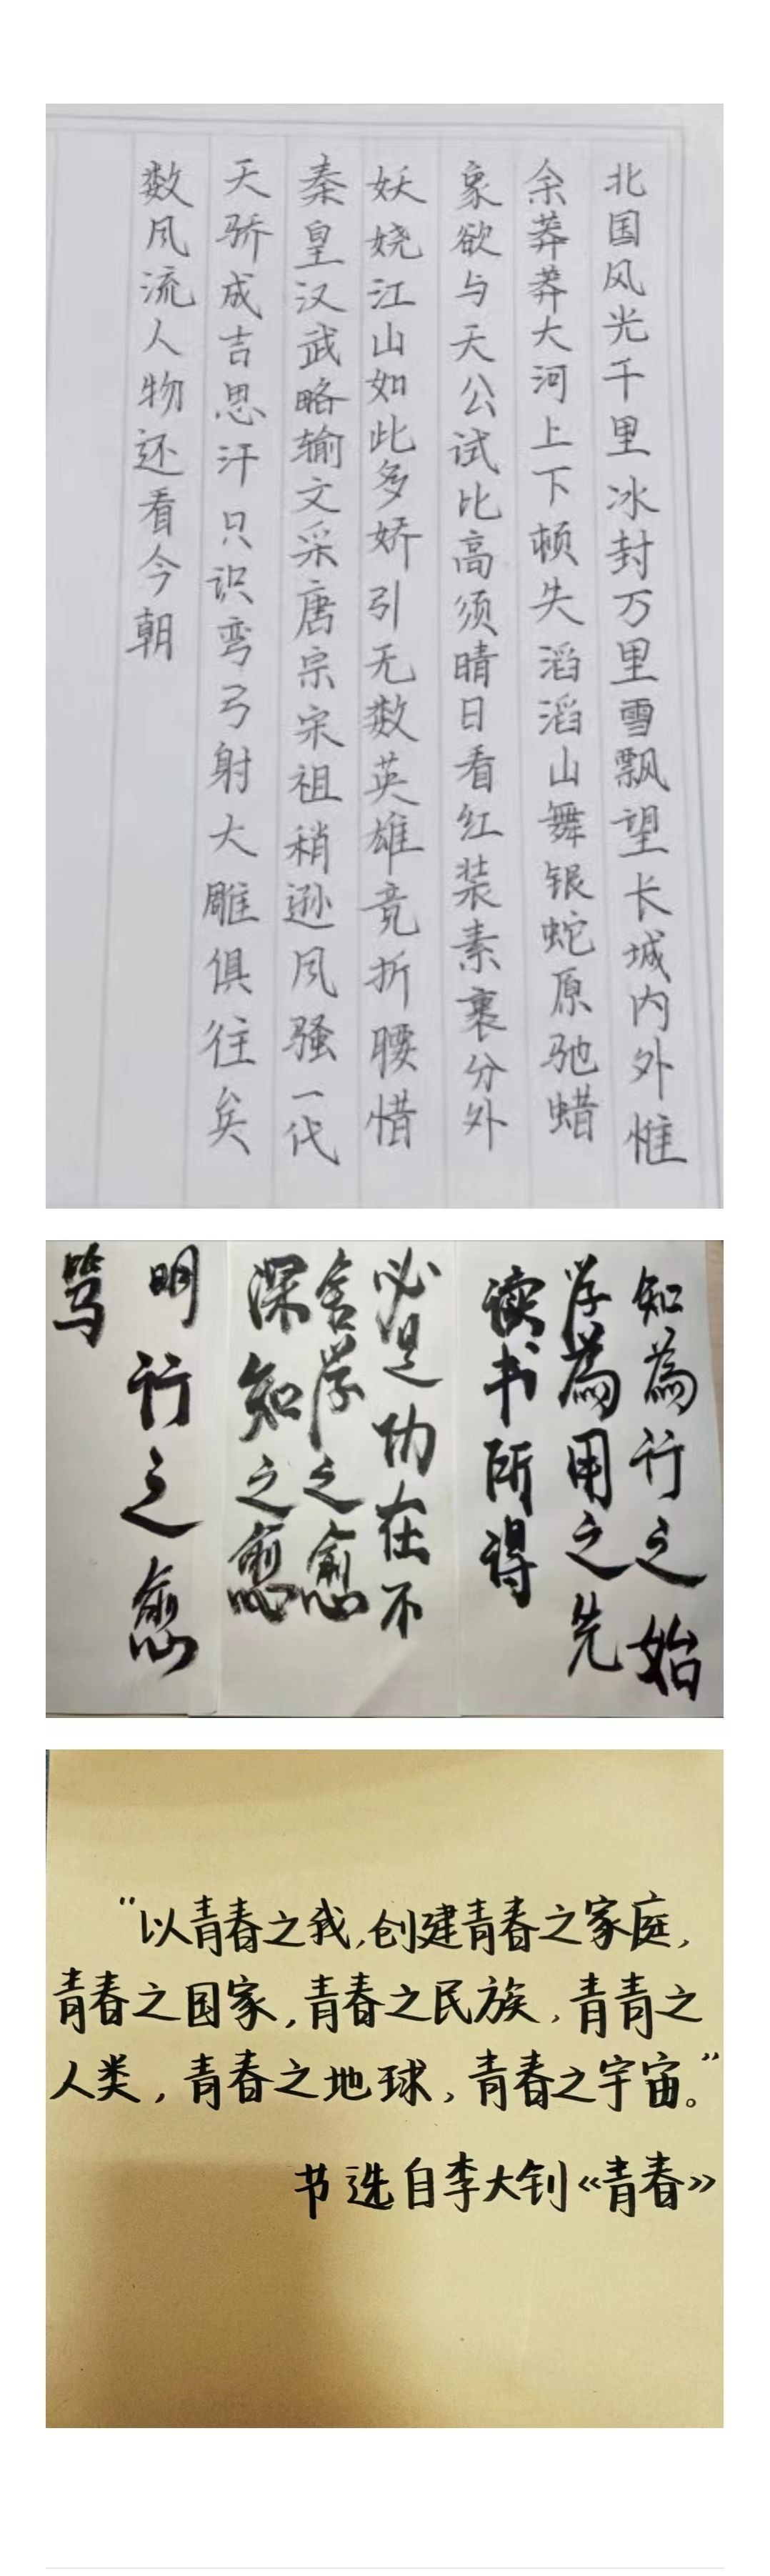 北国风光千里冰封万里雪飘望长城内外惟
余莽莽大河上下顿失滔滔山舞银蛇原驰蜡
象欲与天公试比高须晴日看红装素裹分外
妖娆江山如此多娇引无数英雄竞折腰惜
秦皇汉武略输文采唐宗宋祖稍逊风骚一代
天骄成吉思汗只识弯弓射大雕俱往矣
数风流人物还看今朝
知為行之始
学為用之先
读书所得
必是功在不
舍学之愈
深知之愈
明行之愈
笃
“以青春之我,创建青春之家庭,
青春之国家,青春之民族,青青之
人类,青春之地球,青春之宇宙。”
节选自李大钊《青春》